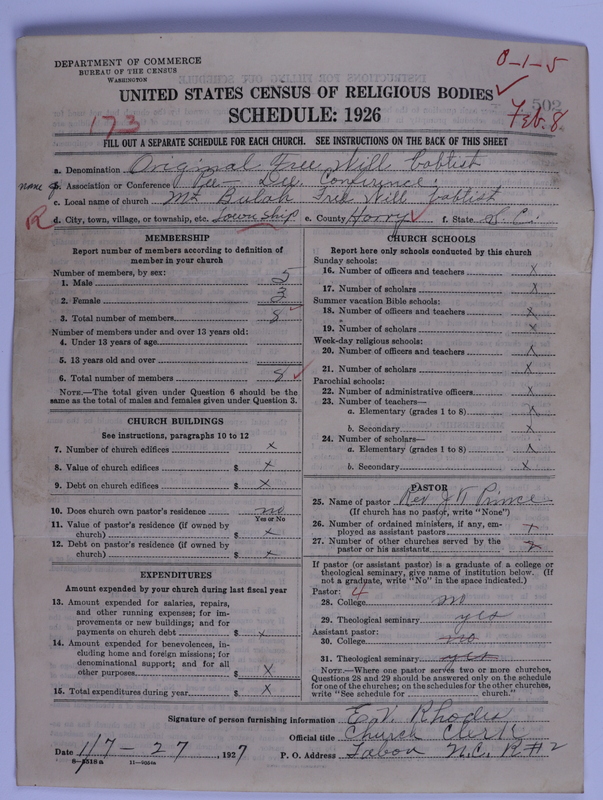 DEPARTMENT OF COMMERCE
BUREAU OF THE CENSUS
WASHINGTON
0-1-5
UNITED STATES CENSUS OF RELIGIOUS BODIES
502
SCHEDULE: 1926
Feb. 8
173
FILL OUT A SEPARATE SCHEDULE FOR EACH CHURCH. SEE INSTRUCTIONS ON THE BACK OF THIS SHEET
a. Denomination Original Free Will babtist
name of b. Association or Conference Pee-Dee Conference.
c. Local name of church Mt Bulah Free Will babtist
R d. City, town, village, or township, etc. township e. County Horry f. State S. C.
MEMBERSHIP
Report number of members according to definition of member in your church
Number of members, by sex:
1. Male 5
2. Female 3
3. Total number of members 8
Number of members under and over 13 years old:
4. Under 13 years of age
5. 13 years old and over
6. Total number of members 8
NOTE.—The total given under Question 6 should be the same as the total of males and females given under Question 3.
CHURCH BUILDINGS
See instructions, paragraphs 10 to 12
7. Number of church edifices x
8. Value of church edifices $ x
9. Debt on church edifices $ x
10. Does church own pastor's residence no
Yes or No
11. Value of pastor's residence (if owned by church) $ x
12. Debt on pastor's residence (if owned by church) $ x
EXPENDITURES
Amount expended by your church during last fiscal year
13. Amount expended for salaries, repairs, and other running expenses; for improvements or new buildings; and for payments on church debt $ x
14. Amount expended for benevolences, including home and foreign missions; for denominational support; and for all other purposes $ x
15. Total expenditures during year $ x
CHURCH SCHOOLS
Report here only schools conducted by this church
Sunday schools:
16. Number of officers and teachers x
17. Number of scholars x
Summer vacation Bible schools:
18. Number of officers and teachers x
19. Number of scholars x
Week-day religious schools:
20. Number of officers and teachers x
21. Number of scholars x
Parochial schools:
22. Number of administrative officers x
23. Number of teachers—
a. Elementary (grades 1 to 8) x
b. Secondary x
24. Number of scholars—
a. Elementary (grades 1 to 8) x
b. Secondary x
PASTOR
25. Name of pastor Rev J W Prince
(If church has no pastor, write "None")
26. Number of ordained ministers, if any, employed as assistant pastors x
27. Number of other churches served by the pastor or his assistants
If pastor (or assistant pastor) is a graduate of a college or theological seminary, give name of institution below. (If not a graduate, write "No" in the space indicated.)
Pastor: 4
28. College no
29. Theological seminary yes
Assistant pastor:
30. College
31. Theological seminary yes
NOTE.—Where one pastor serves two or more churches, Questions 28 and 29 should be answered only on the schedule for one of the churches; on the schedules for the other churches, write "See schedule for church."
Signature of person furnishing information E. V. Rhodes
Official title Church Clerk
Date 1/7-27, 1927 P. O. Address Tabor N.C. R#2